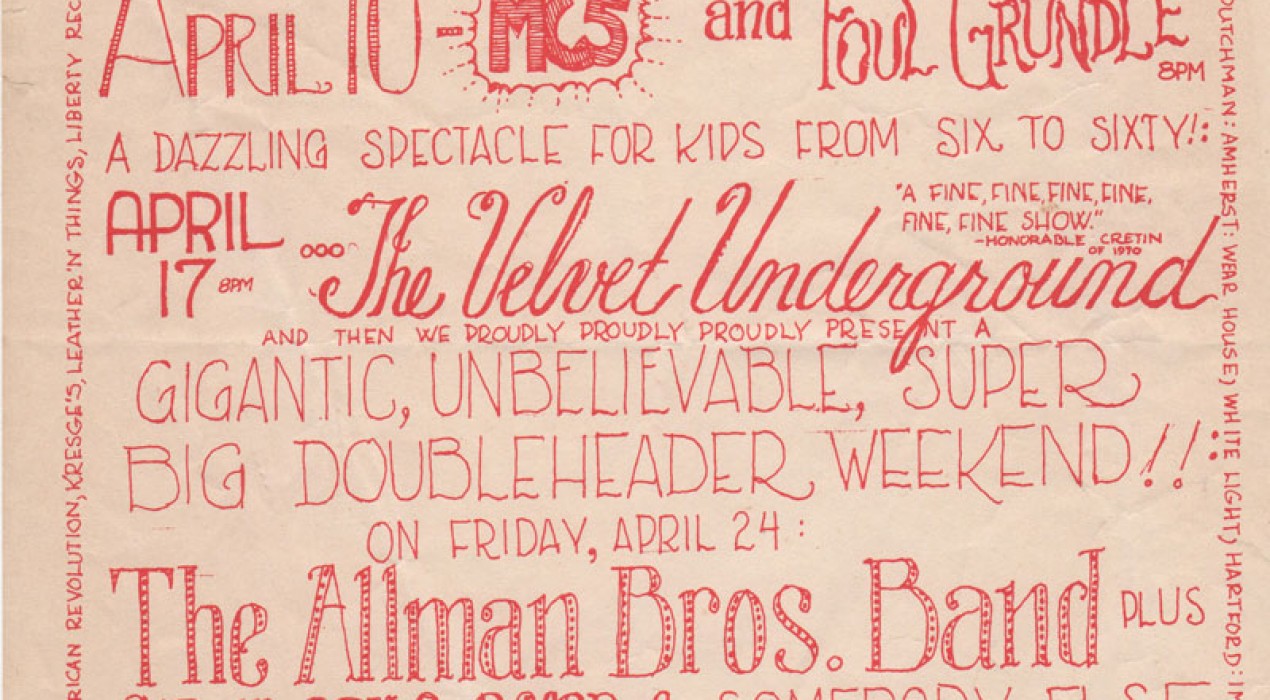 APRIL 10 - MC5 and FOUL GRUNDLE
8PM
A DAZZLING SPECTACLE FOR KIDS FROM SIX TO SIXTY!:
APRIL
17 8PM
... The Velvet Underground
"A FINE, FINE, FINE, FINE,
FINE, FINE SHOW."
-HONORABLE CRETIN
OF 1970
AND THEN WE PROUDLY PROUDLY PROUDLY PRESENT A
GIGANTIC, UNBELIEVABLE, SUPER
BIG DOUBLEHEADER WEEKEND!!:
ON FRIDAY, APRIL 24:
The Allman Bros. Band PLUS
& SOMEBODY ELSE
REVOLUTION, KRESGE'S, LEATHER 'N THINGS, LIBERTY
DUTCHMAN: AMHERST: WEAR HOUSE, WHITE LIGHT, HARTFORD: